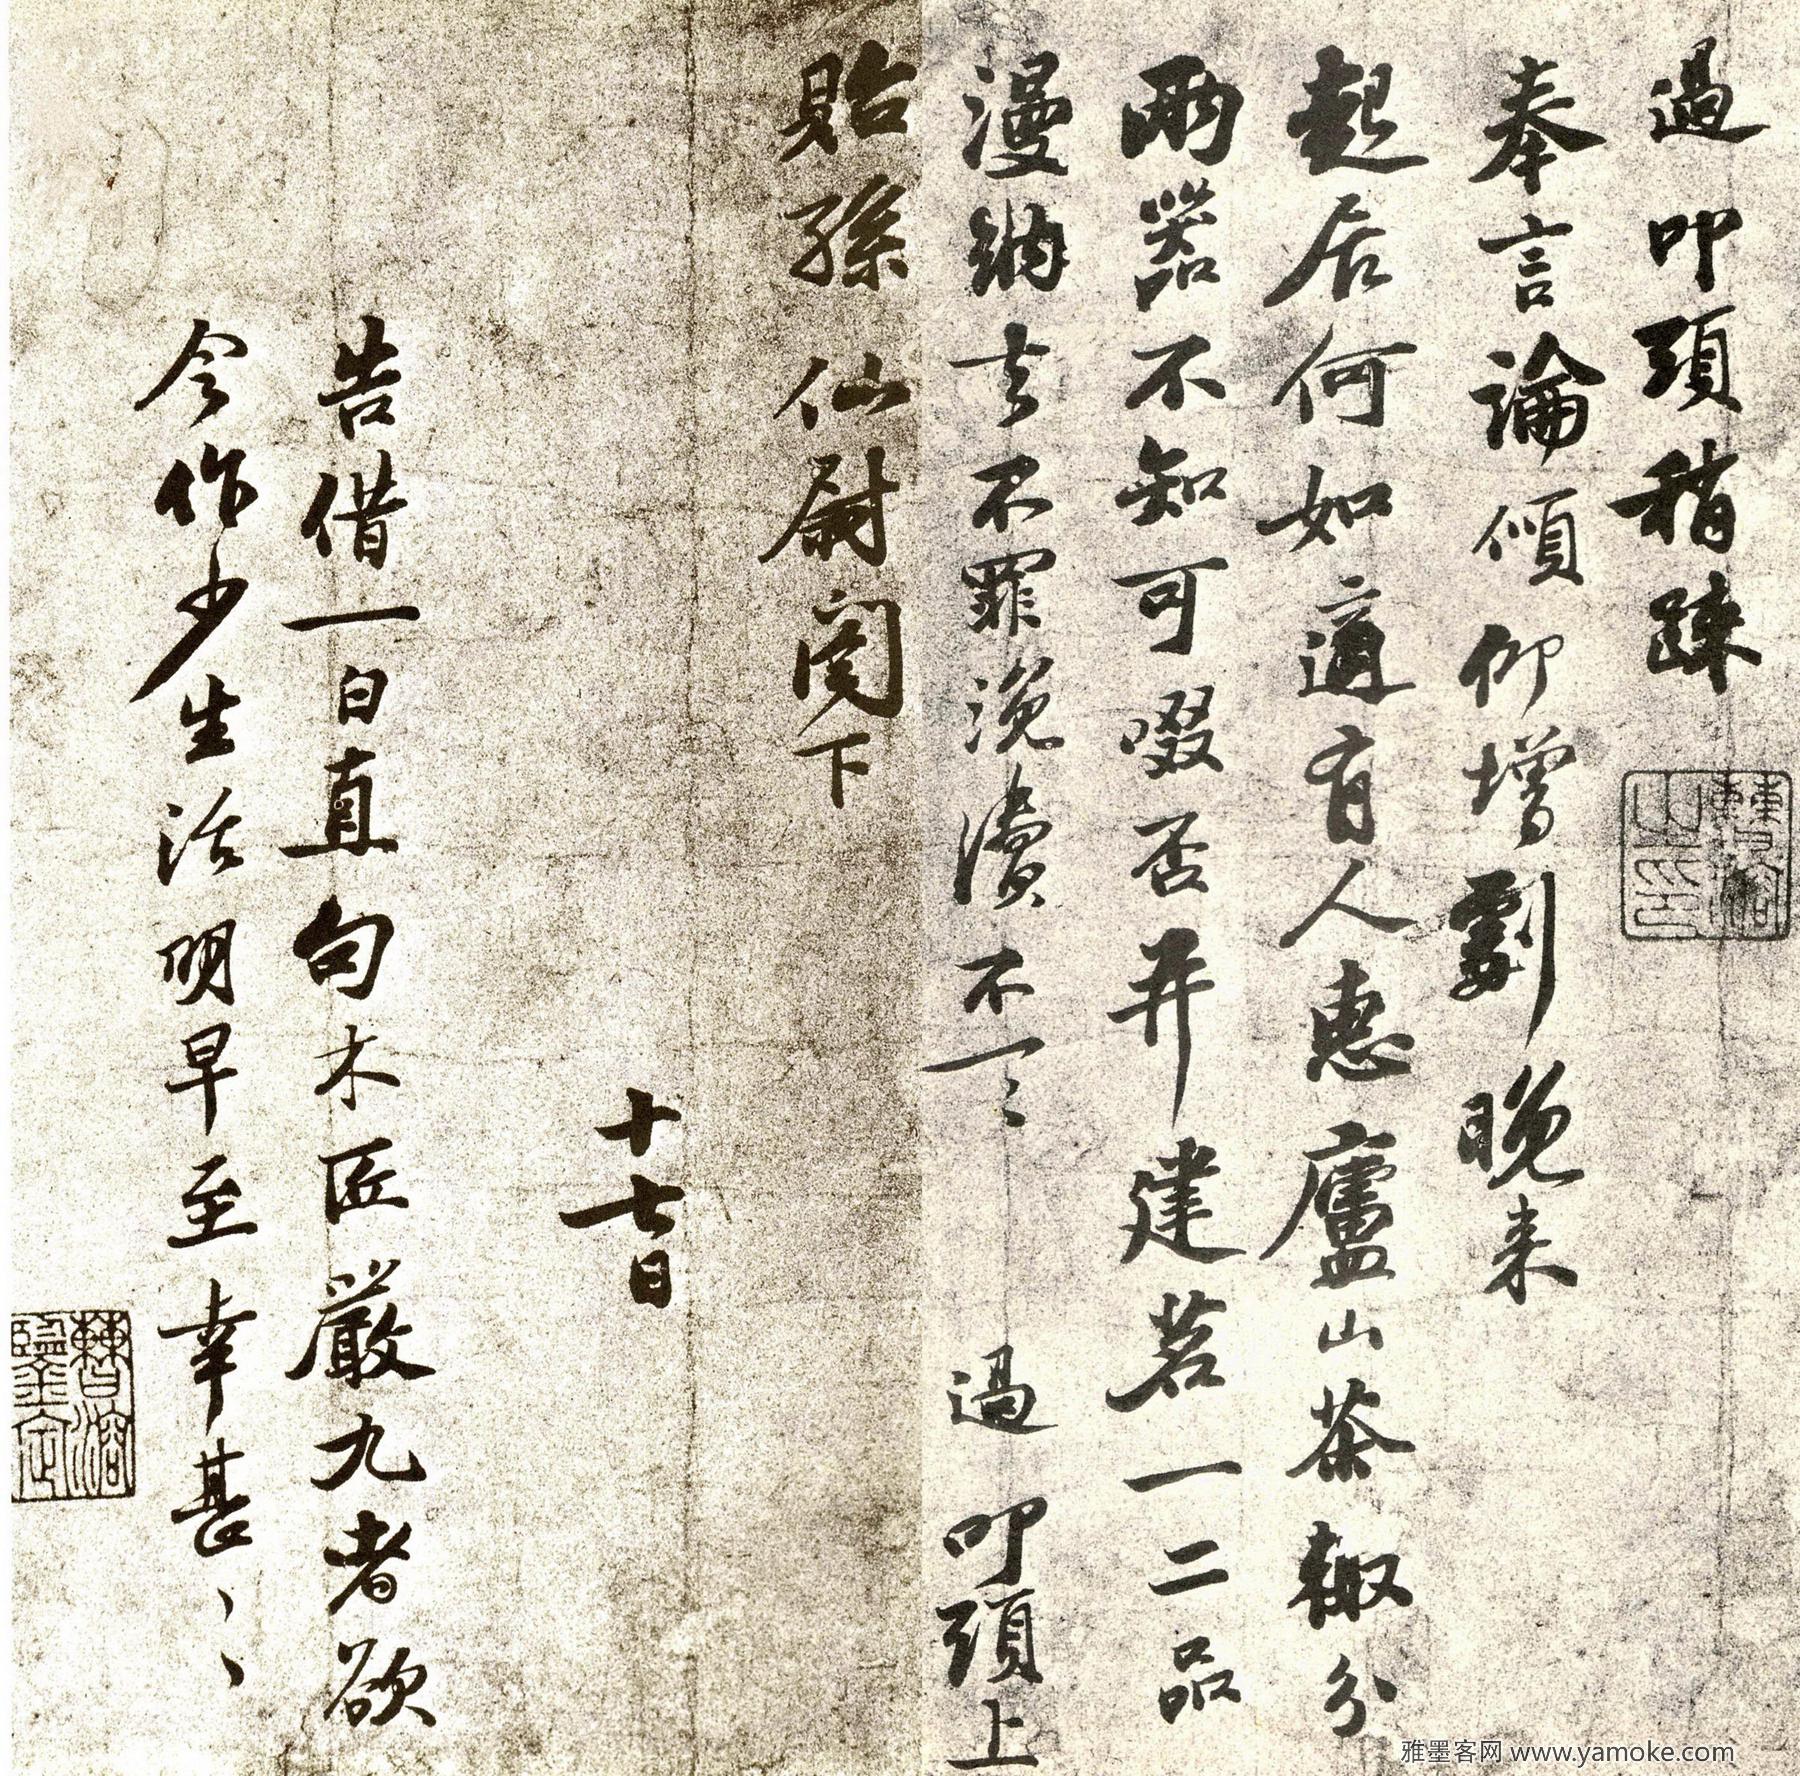 過叩頭稍疎
奉言論傾仰增劇晚来
起居何如適有人惠廬山茶輙分
兩器不知可啜否并建茗一二品
漫納去不罪浼瀆不一一
過叩頭上
貽孫仙尉閣下
十七日
告借一白直句木匠嚴九者欲
令作少生活明早至幸甚〻
雅墨客网 www.yamoke.com